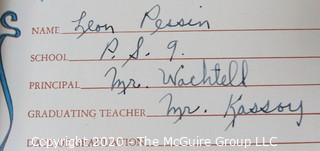 NAME Leon Persin
SCHOOL P. S. 9.
PRINCIPAL Mr. Wachtell
GRADUATING TEACHER Mr. Kassoy
Copyright 2020 - The McGuire Group LLC